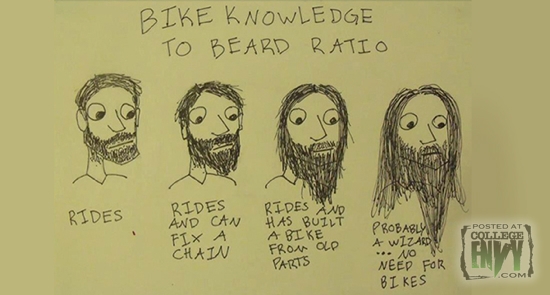 BIKE KNOWLEDGE
TO BEARD RATIO
RIDES
RIDES
AND CAN
FIX A
CHAIN
RIDES AND
HAS BUILT
A BIKE
FROM OLD
PARTS
PROBABLY
A WIZARD
... NO
NEED FOR
BIKES
POSTED AT
COLLEGE
ENVY
.COM